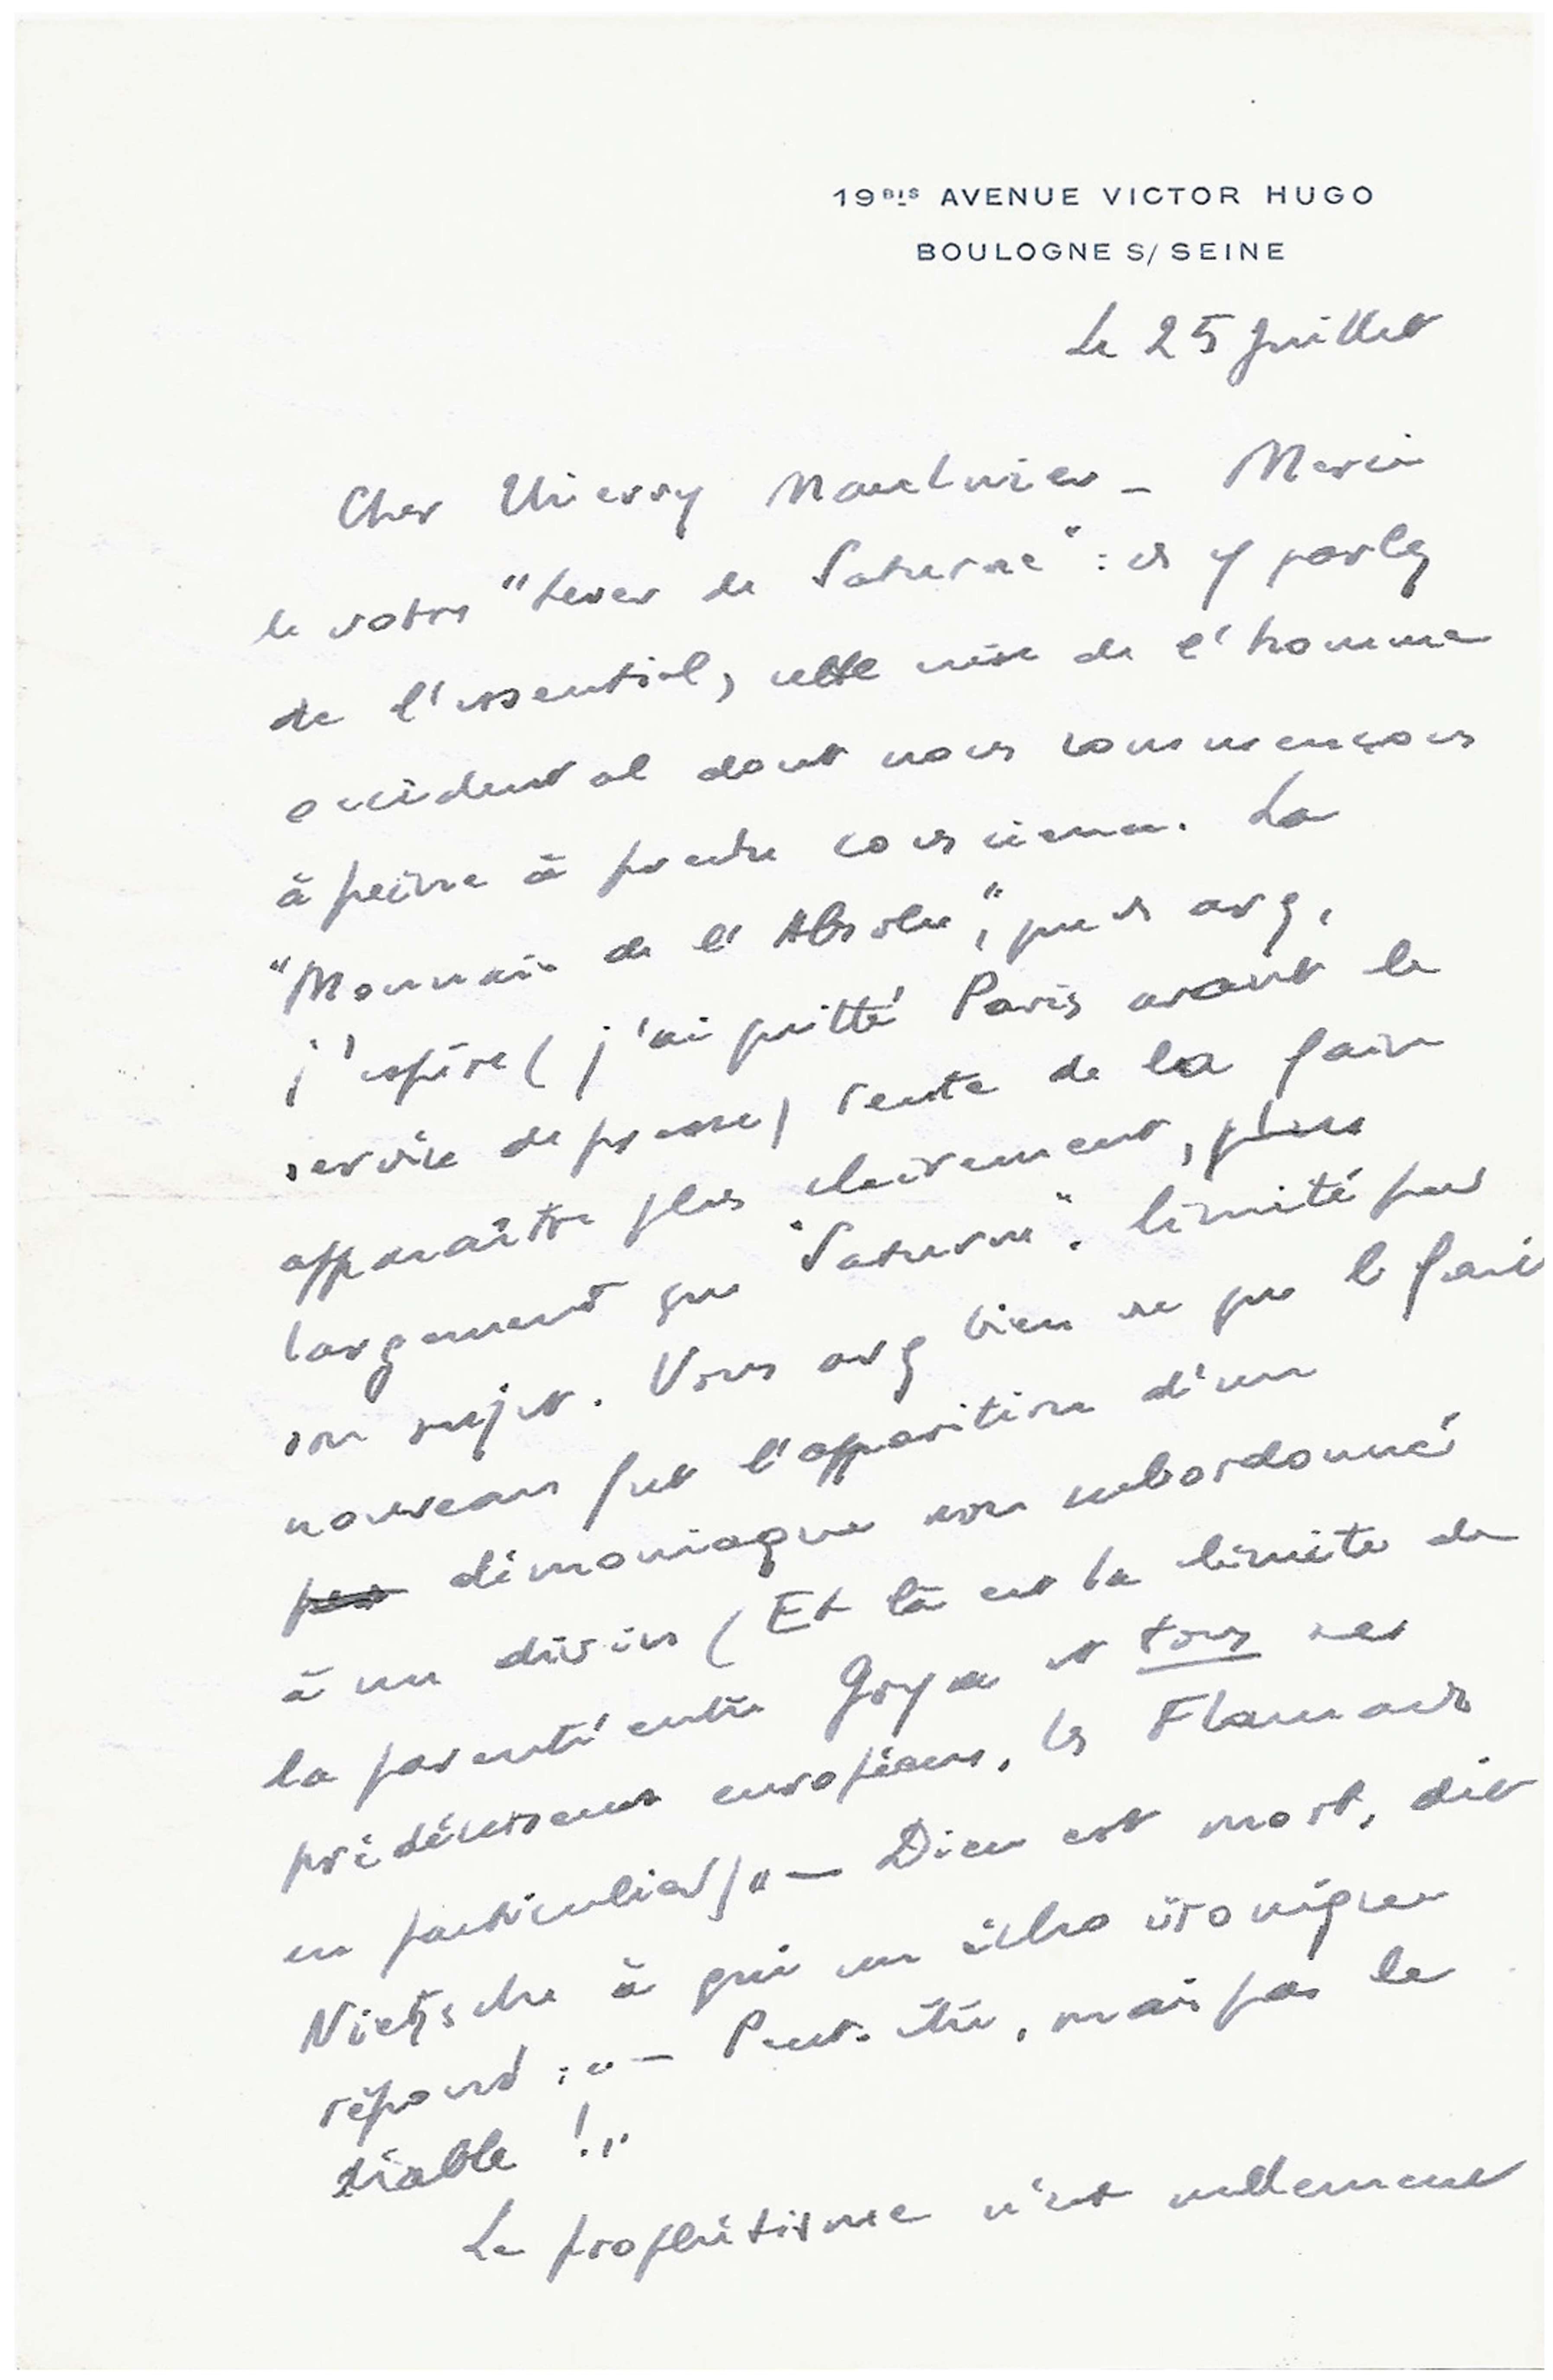 19BIS AVENUE VICTOR HUGO
BOULOGNE S/ SEINE
Le 25 Juillet
Cher Thierry Maulnier _ Merci
de votre "Lever de Saturne" : vs y parlez
de l'essentiel, cette crise de l'homme
occidental dont nous commençons
à peine à prendre conscience. La
"Monnaie de l'Absolu", que vs avez,
j'espère (j'ai quitté Paris avant le
service de presse) tente de la faire
apparaître plus clairement, plus
largement que "Saturne", limité par
son sujet. Vous avez bien vu que le fait
nouveau fut l'apparition d'un
démoniaque non subordonné
à un divin (Et là est la limite de
la parenté entre Goya et tous ses
prédécesseurs européens, les Flamands
en particulier) "— Dieu est mort, dit
Nietzsche à qui un écho ironique
répond : "— Peut-être, mais pas le
diable !"
Le prophétisme n'est nullement